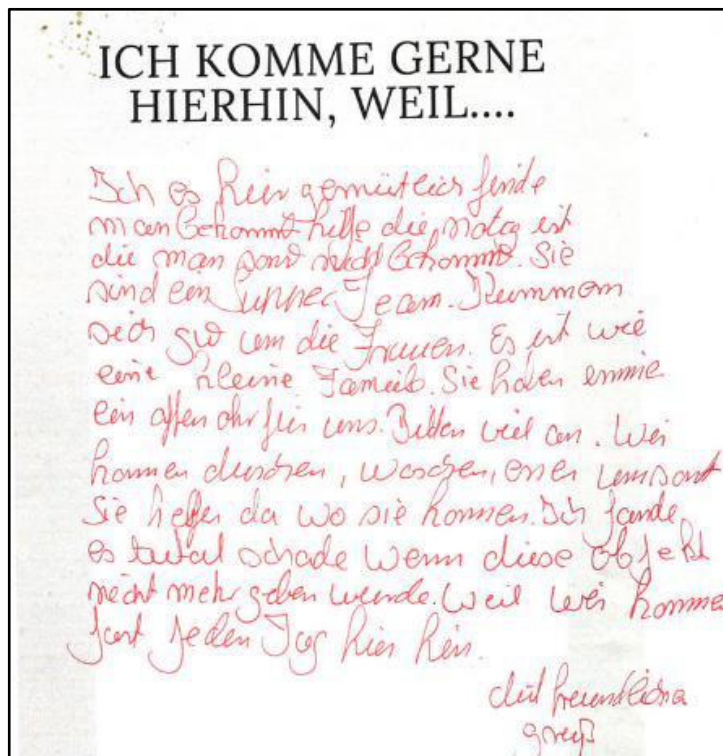 ICH KOMME GERNE
HIERHIN, WEIL....
Ich es hier gemütlich finde
man bekommt hilfe die notig ist
die man sonst nicht bekommt. Sie
sind ein Supper Team. Kummern
sich gut um die Frauen. Es ist wie
eine kleine Familie. Sie haben immer
ein offen ohr für uns. Bitten viel an. Wir
konnen duschen, waschen, essen umsonst
Sie helfen da wo sie konnen. Ich fande
es total schade wenn diese objekt
nicht mehr geben wurde. Weil wir komme
fast jeden Tag hier hin.
Mit freundlicha
gruß